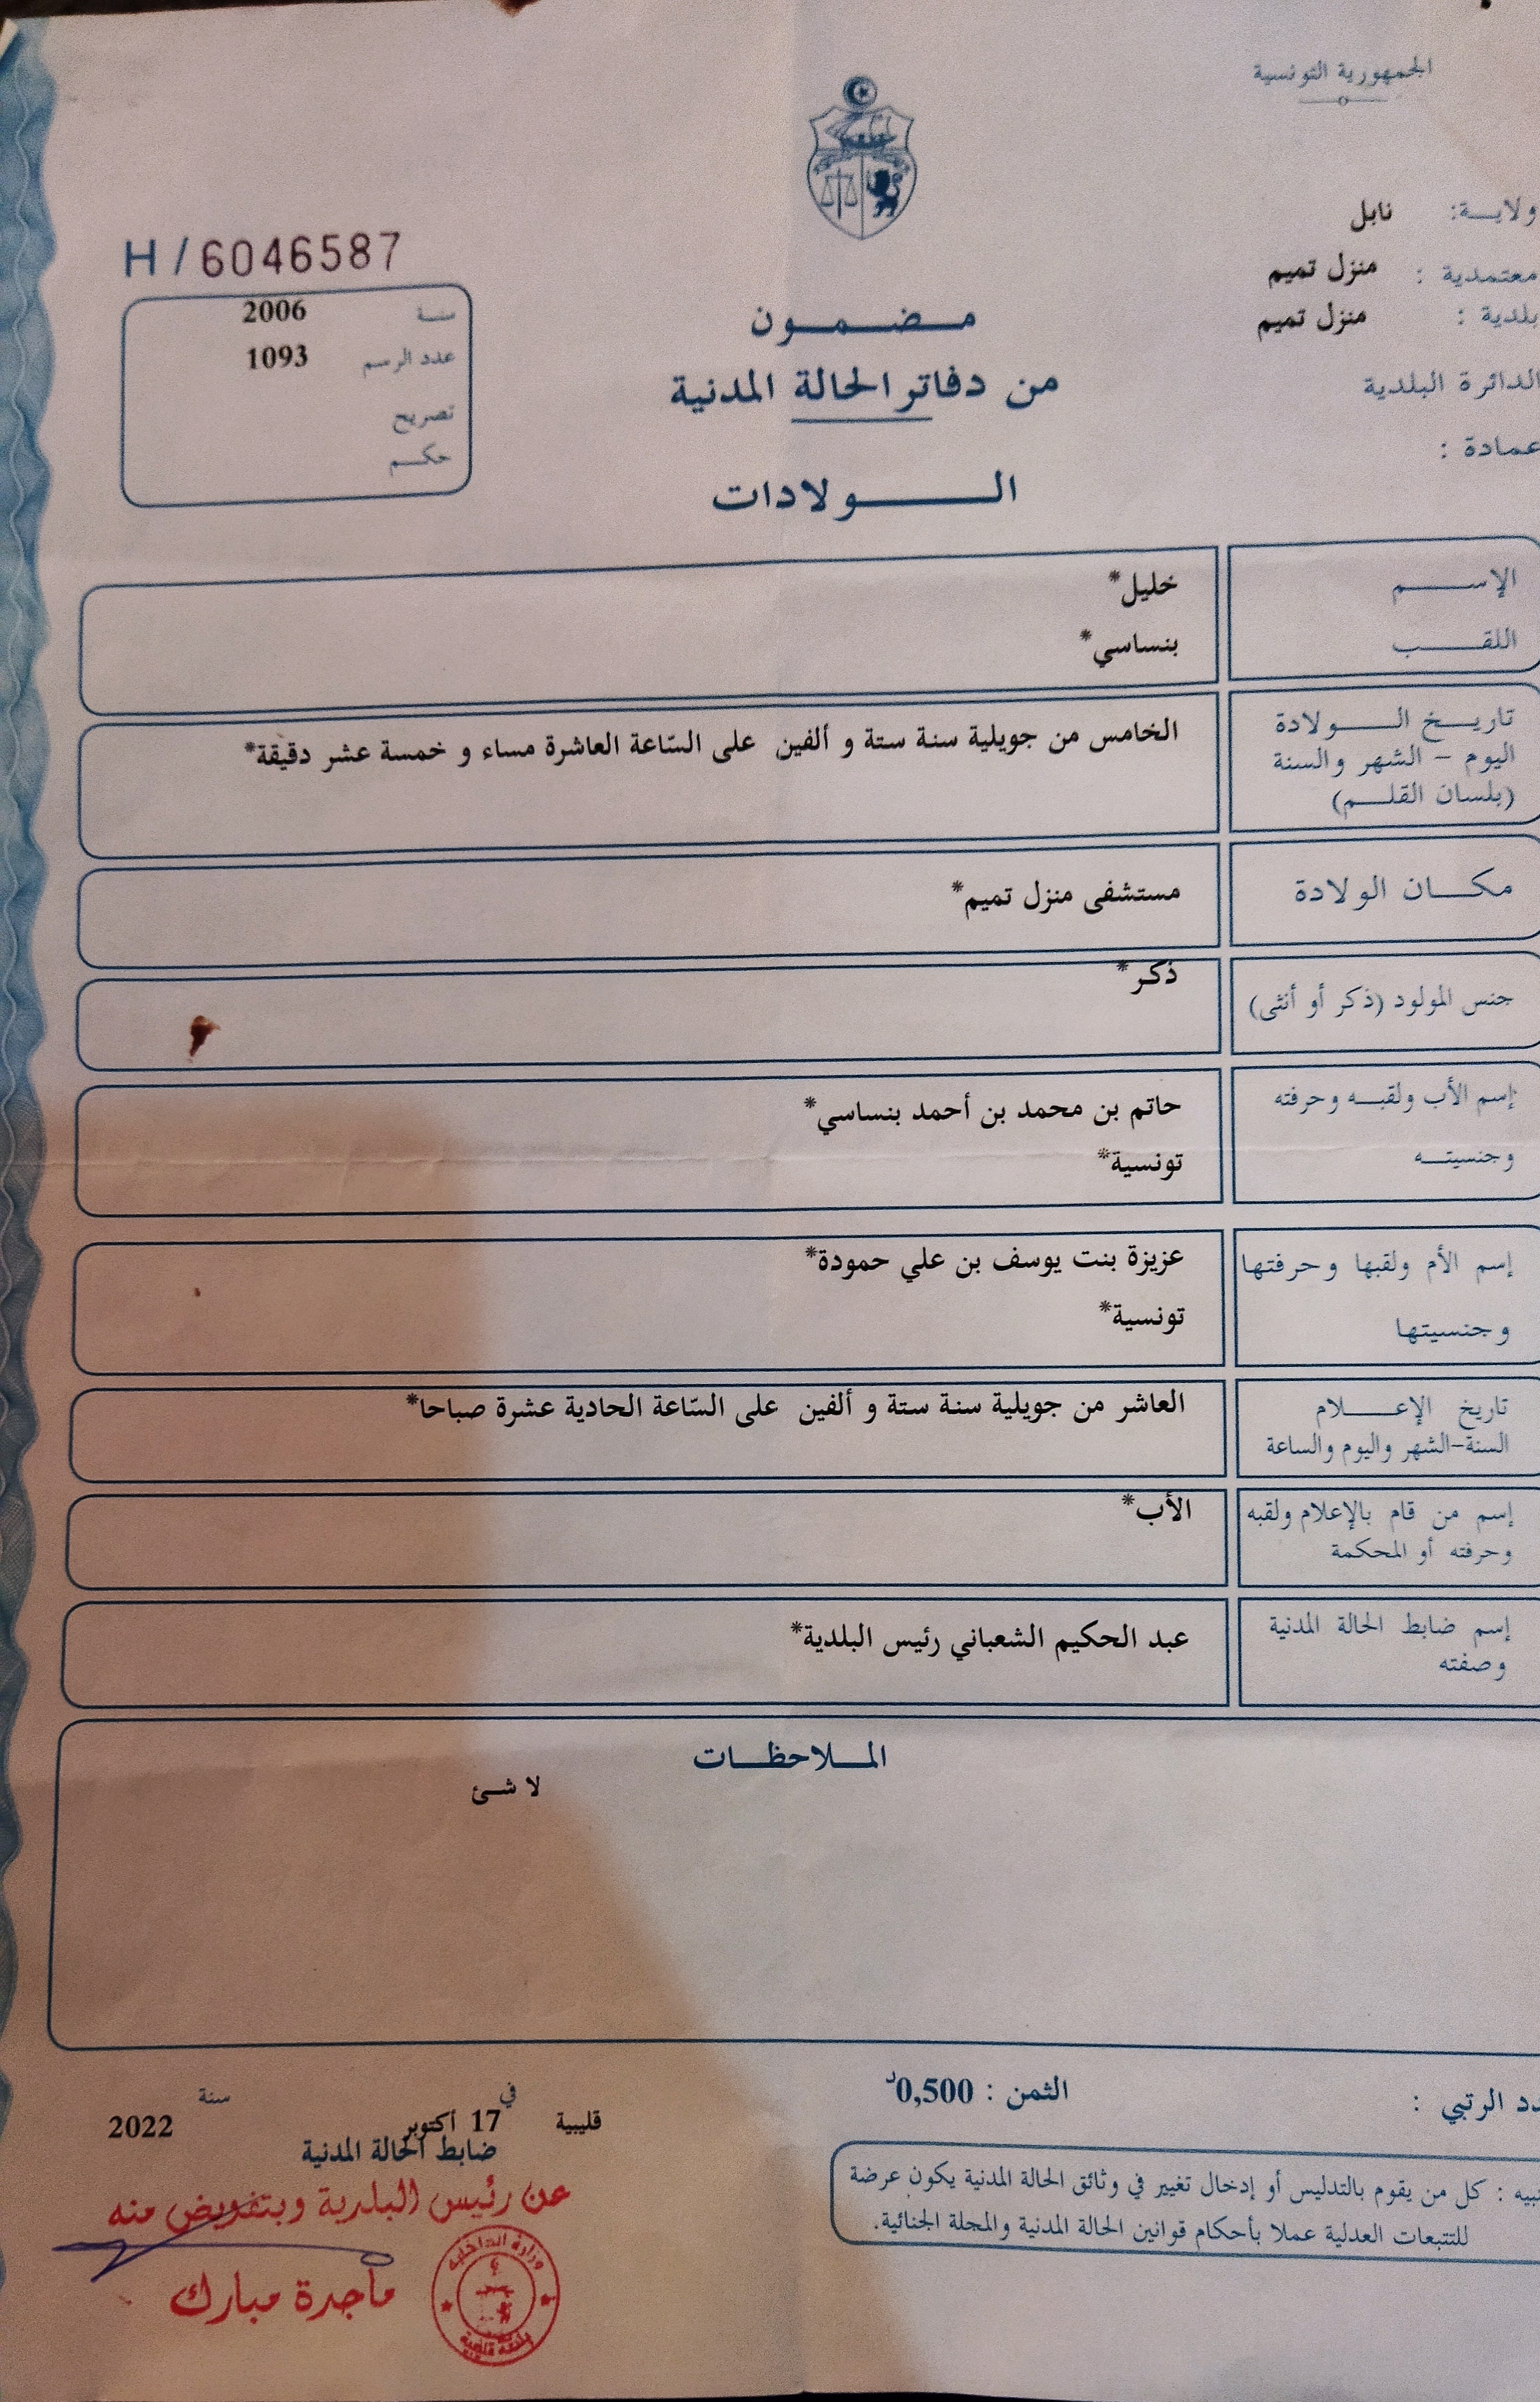 الجمهورية التونسية
ولاية: نابل
معتمدية : منزل تميم
بلدية : منزل تميم
الدائرة البلدية
عمادة :
H / 6046587
سنة 2006
عدد الرسم 1093
تصريح
حكم
مضمون
من دفاتر الحالة المدنية
الولادات
الإسم خليل*
اللقب بنساسي*
تاريخ الولادة
اليوم - الشهر والسنة
(بلسان القلم)
الخامس من جويلية سنة ستة و ألفين على السّاعة العاشرة مساء و خمسة عشر دقيقة*
مكان الولادة مستشفى منزل تميم*
جنس المولود (ذكر أو أنثى) ذكر*
إسم الأب ولقبه وحرفته حاتم بن محمد بن أحمد بنساسي*
وجنسيته تونسية*
إسم الأم ولقبها وحرفتها عزيزة بنت يوسف بن علي حمودة*
وجنسيتها تونسية*
تاريخ الإعلام العاشر من جويلية سنة ستة و ألفين على السّاعة الحادية عشرة صباحا*
السنة-الشهر واليوم والساعة
إسم من قام بالإعلام ولقبه الأب*
وحرفته أو المحكمة
إسم ضابط الحالة المدنية عبد الحكيم الشعباني رئيس البلدية*
وصفته
الملاحظات
لا شئ
الرتبي :
الثمن : 0,500د
قليبية في 17 أكتوبر سنة 2022
ضابط الحالة المدنية
عن رئيس البلدية وبتفويض منه
ماجدة مبارك
وزارة الداخلية
بلدية قليبية
: كل من يقوم بالتدليس أو إدخال تغيير في وثائق الحالة المدنية يكون عرضة
للتتبعات العدلية عملا بأحكام قوانين الحالة المدنية والمجلة الجنائية.